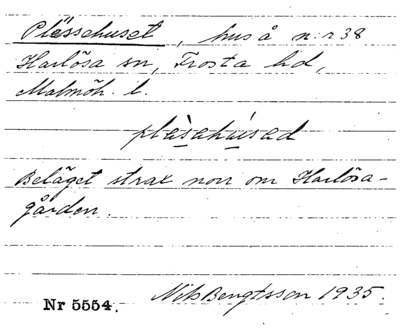 Plässehuset, hus å n:r 38
Harlösa sn, Frosta hd,
Malmöh. l.
plèsahúsed
Beläget strax norr om Harlösa-
gården.
Nils Bengtsson 1935.
Nr 5554.